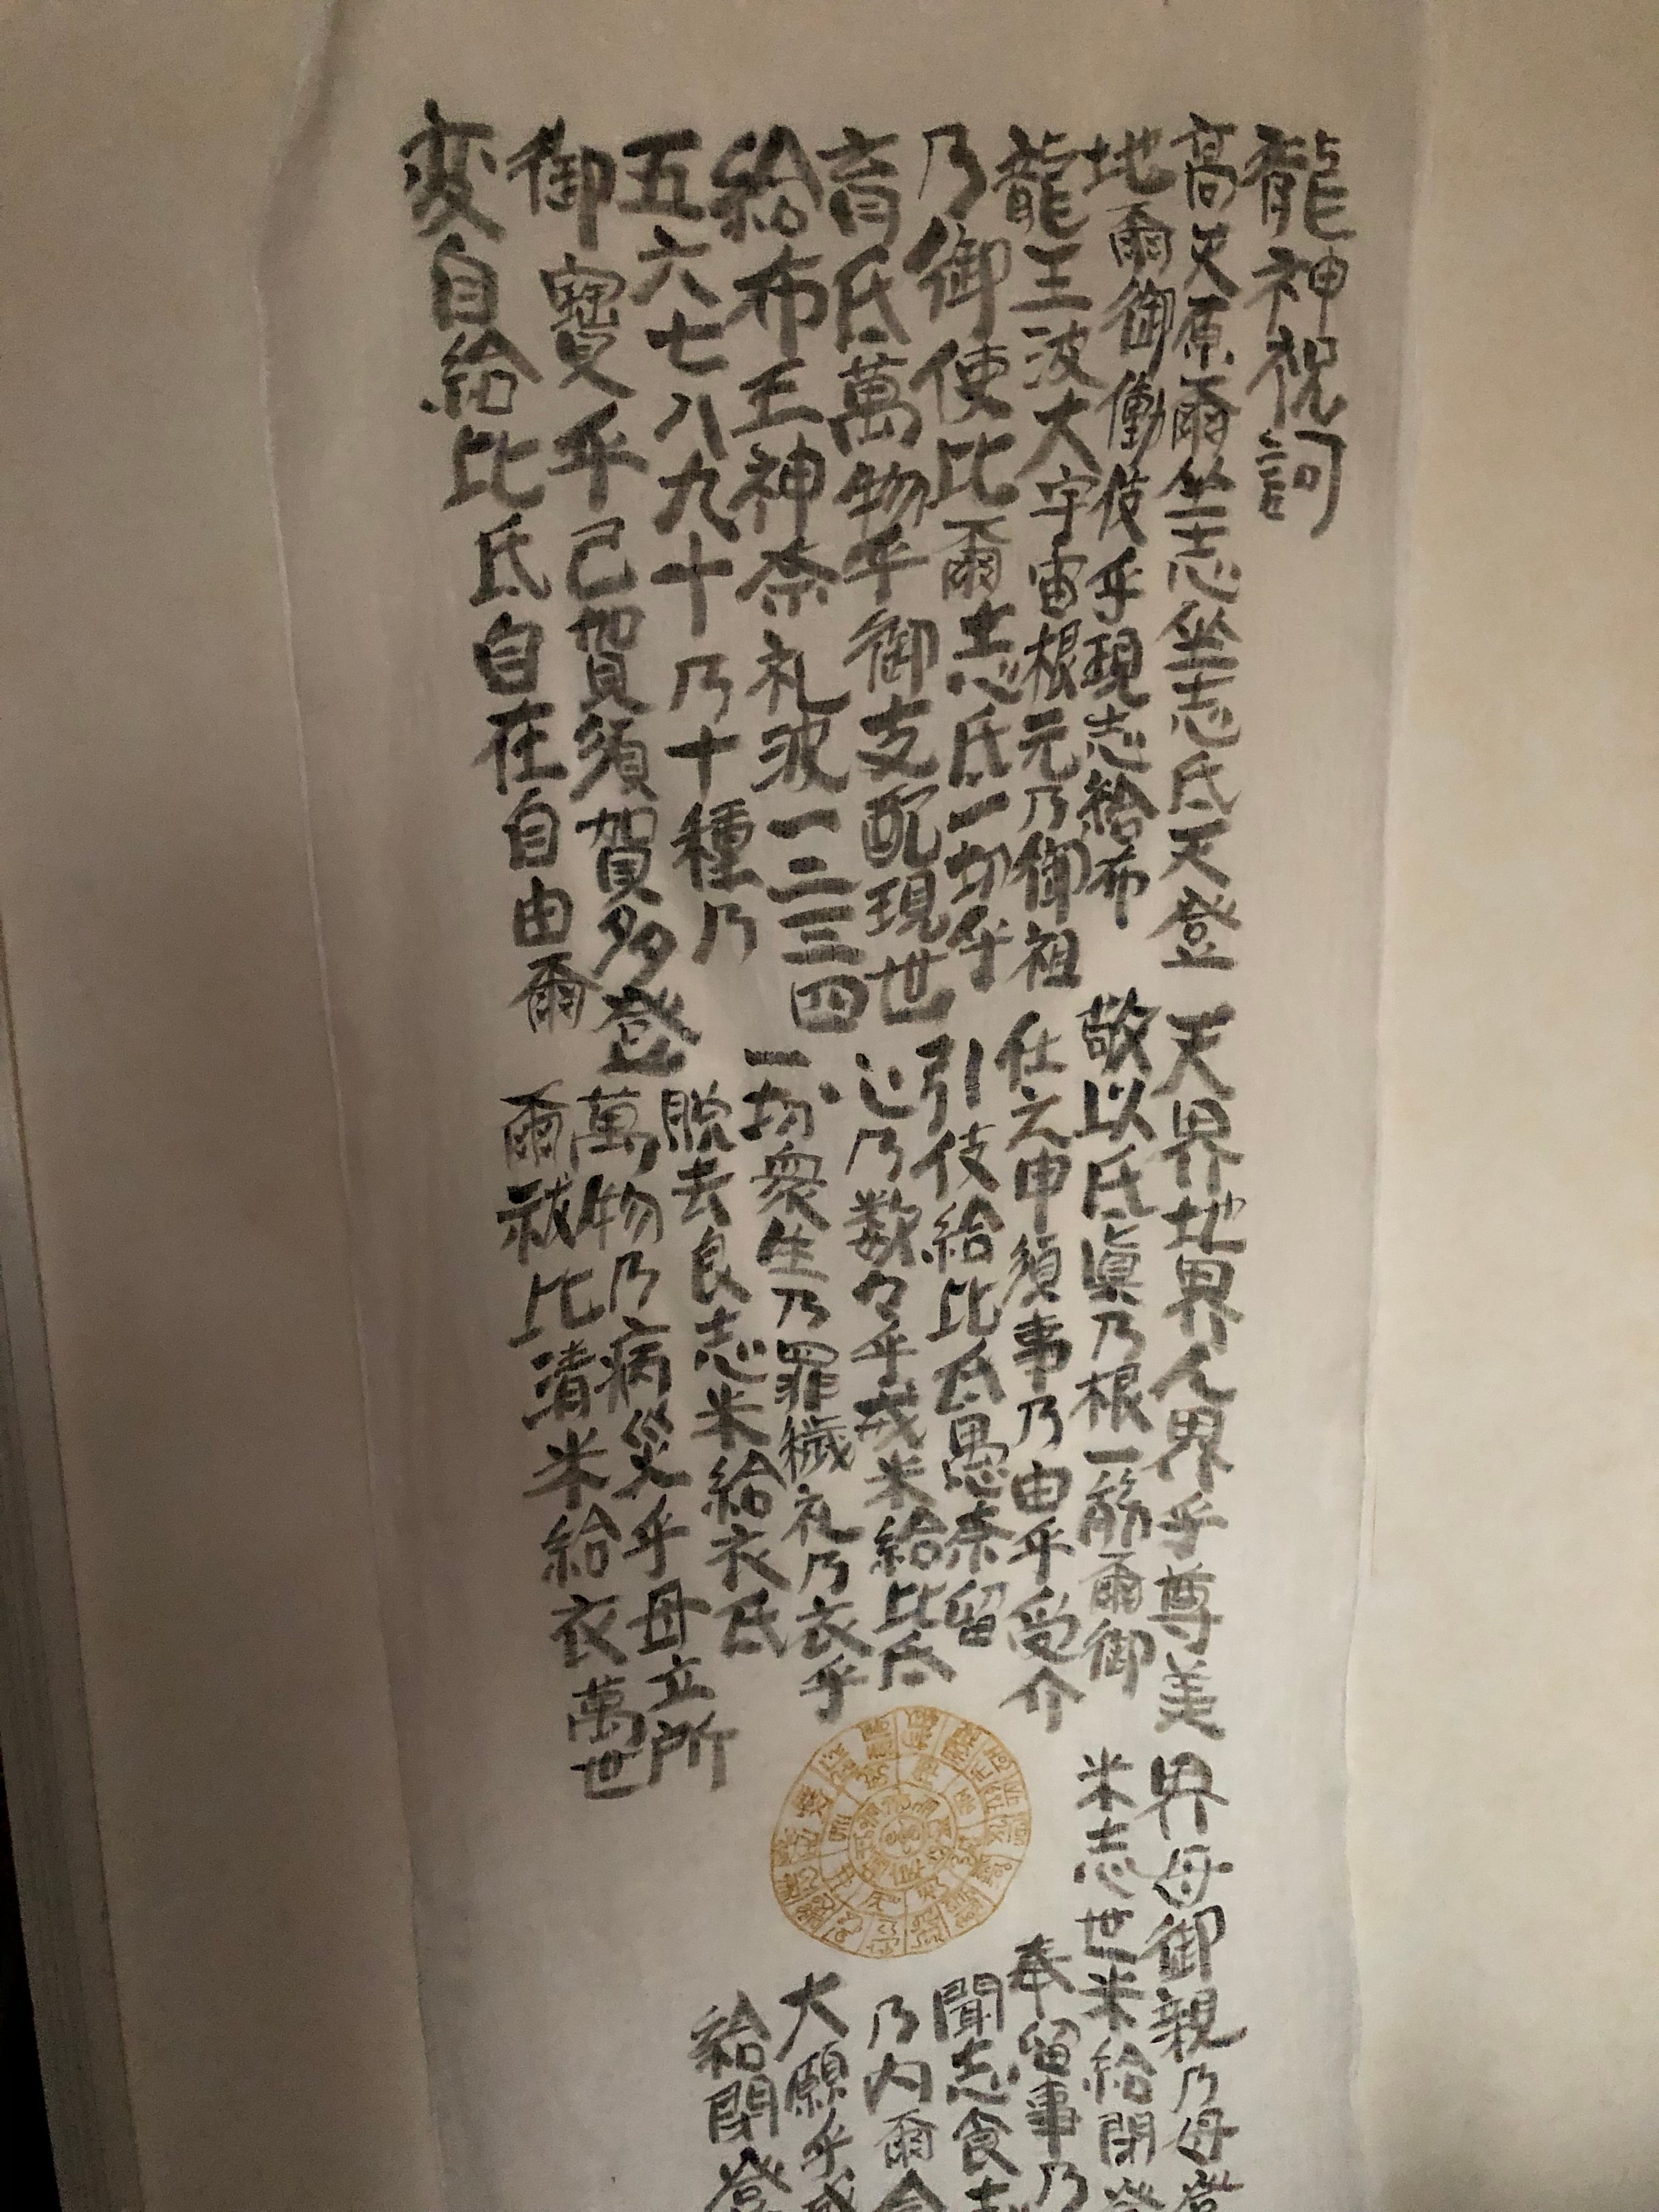 龍神祝詞
高天原爾坐志坐志氐天登
地爾御働伎乎現志給布
龍王波大宇宙根元乃御祖
乃御使比爾志氐一切乎
育氐萬物乎御支配現世
給布王神奈礼波一二三四
五六七八九十乃十種乃
御寶乎己賀須賀多登
変自給比氐自在自由爾
天界地界人界乎尊美
敬以氐眞乃根一筋爾御
仕元申須事乃由乎受介
引伎給比氐愚奈留
心乃数々乎戒米給比氐
一切衆生乃罪穢礼乃衣乎
脱去良志米給衣氐
萬物乃病災乎母立所
爾祓比清米給衣萬世
界母御親乃母登
米志世米給閉登
奉留事乃
聞志食志
乃内爾念
大願乎成
給閉登